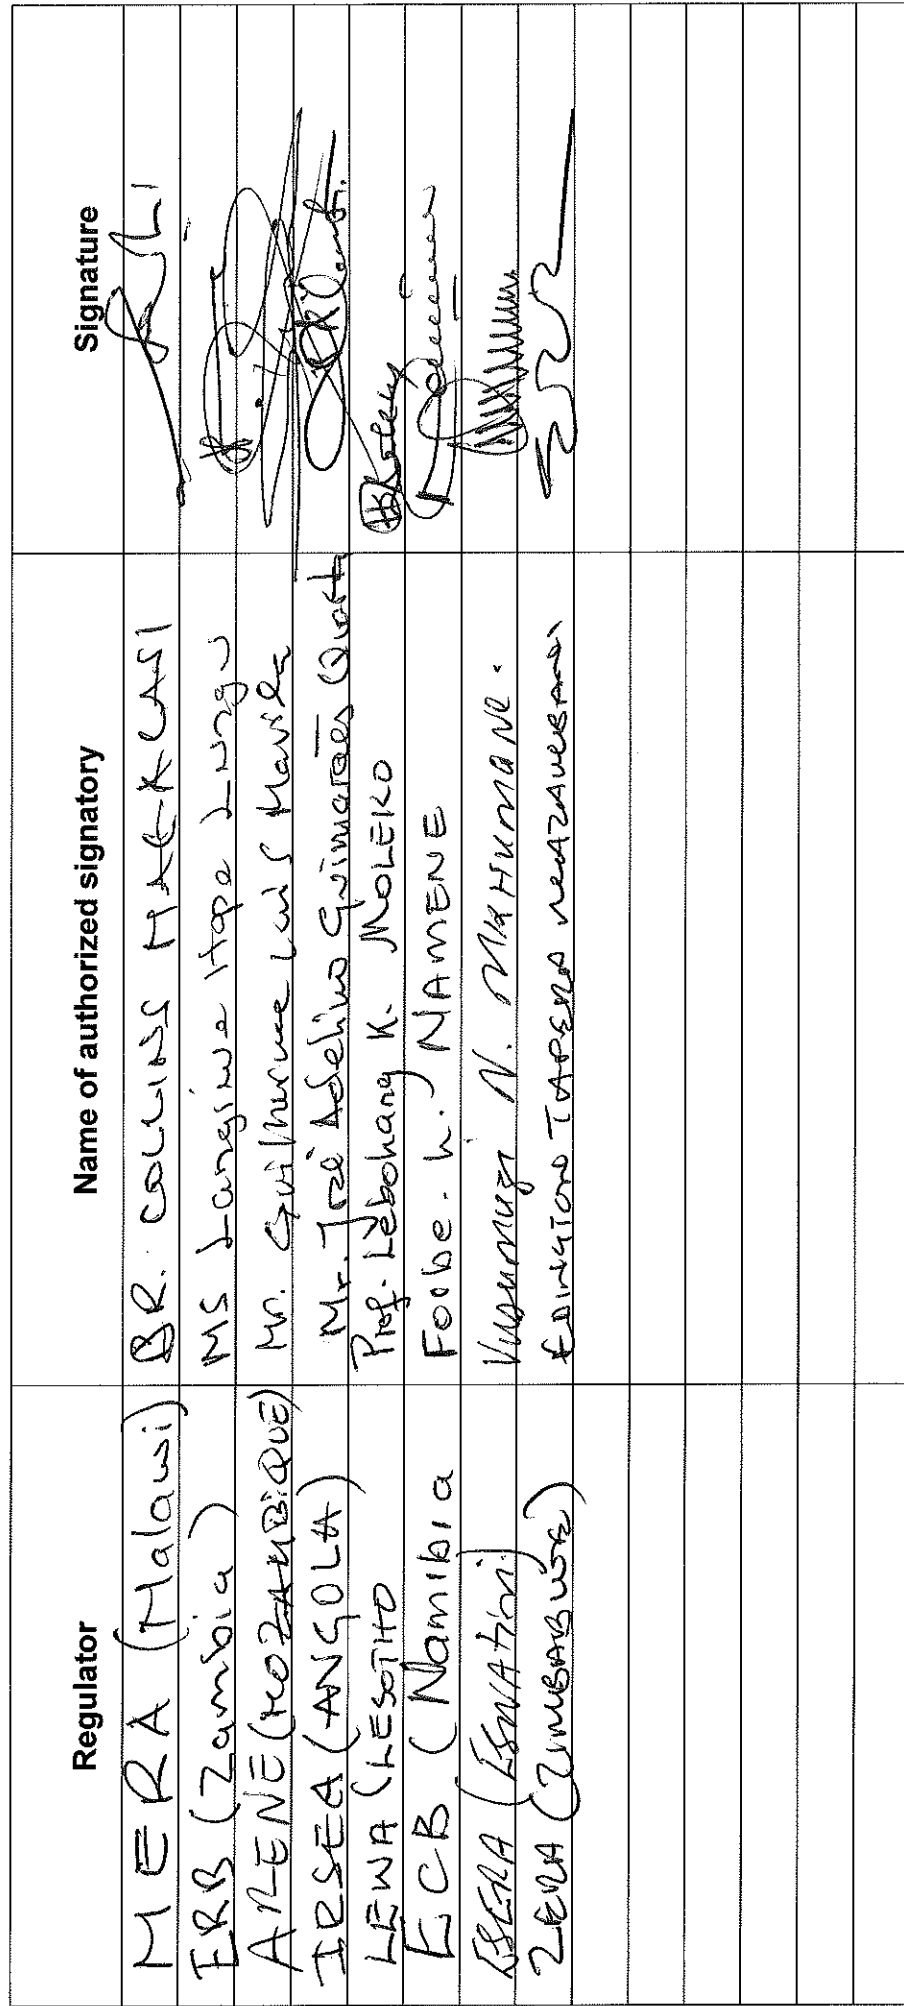 Regulator Name of authorized signatory Signature
MERA (Malawi) DR. COLLINS MAGALASI
ERB (Zambia) MS Langiwe Hope Lungu
ARENE (MOZAMBiQUE) Mr. Guilherme Luis Mavila
IRSEA (ANGOLA) Mr. José Adelino Guimarães
LEWA (LESOTHO Prof. Lebohang K. MOLEKO
ECB (Namibia Foibe. L. NAMENE
ESERA (ESWAtini) Vusumuzi N. MKHUMANE.
ZERA (ZIMBABWE) EDINGTON TAPERA MAZAMBANI